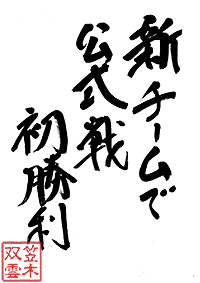 新チームで
公式戦
初勝利
笠木
双雲